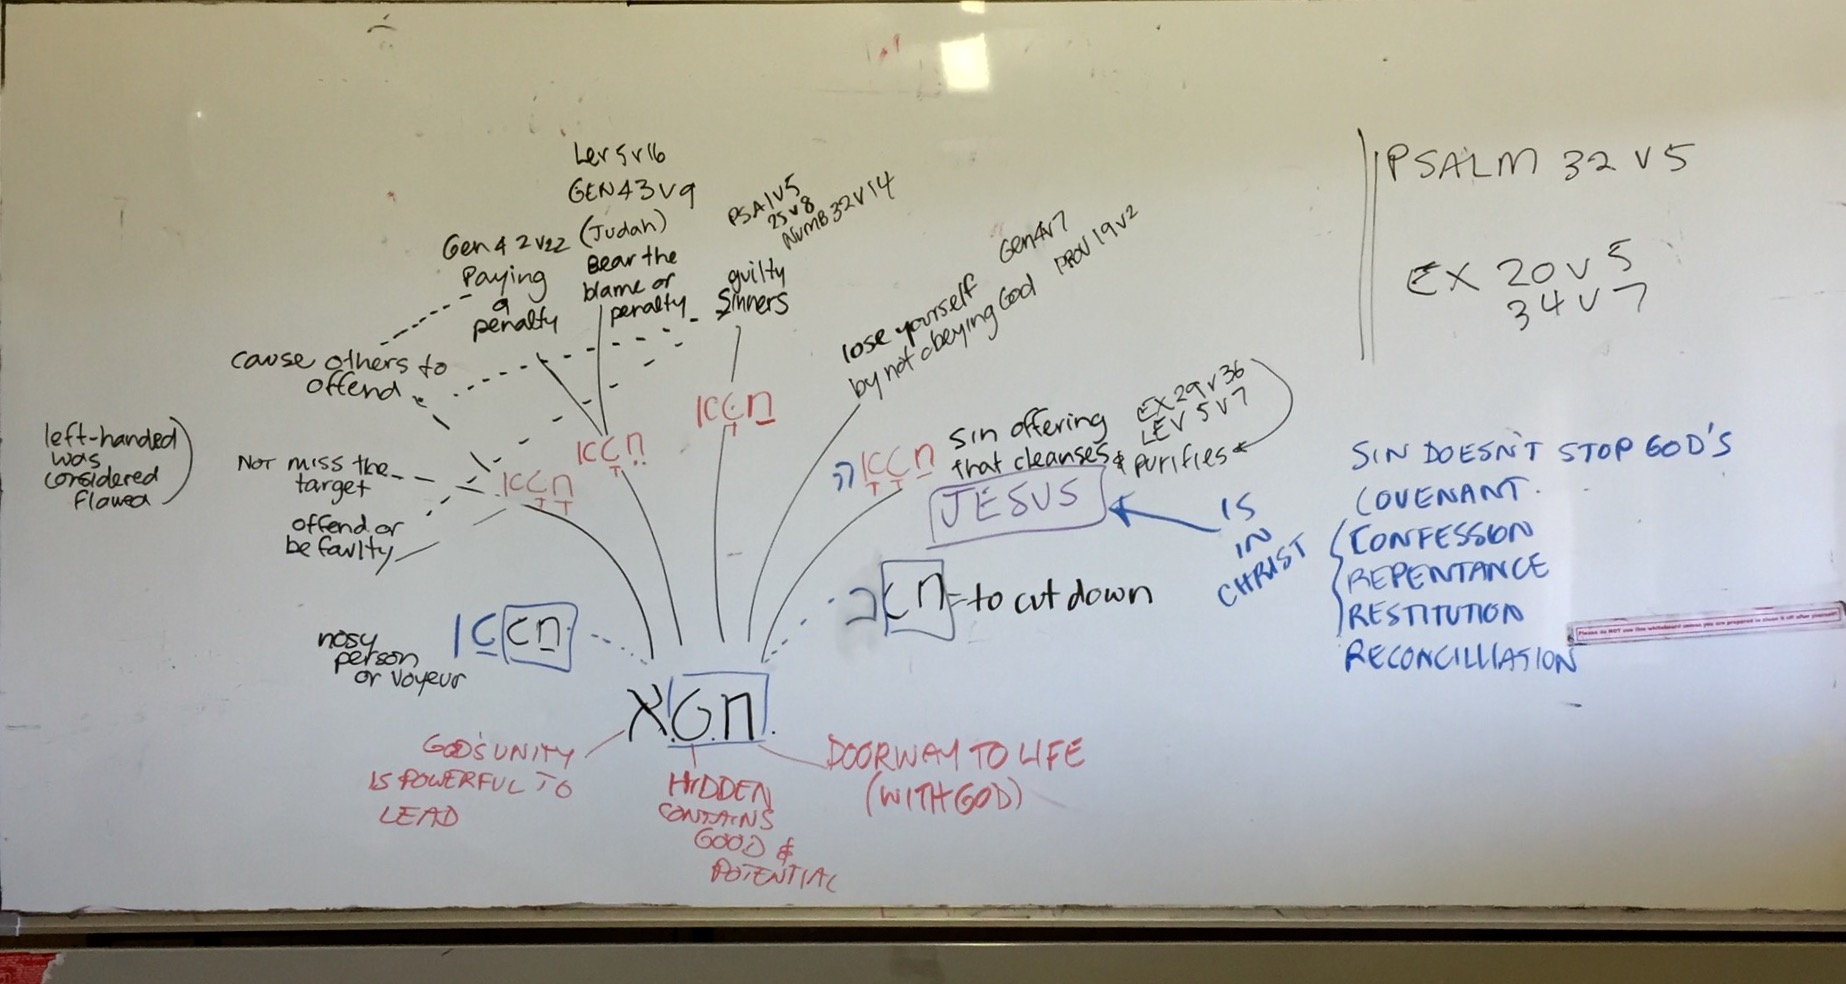 Lev 5 v 16
GEN 43 v 9
(Judah)
Bear the
blame or
penalty
Gen 42 v 22
Paying
a
penalty
PSA 1 v 5
25 v 8
NUMB 32 v 14
guilty
Sinners
lose yourself
by not obeying God
Gen 4 v 7
PROV 19 v 2
cause others to
offend
left-handed
was
considered
flawed
Not miss the
target
offend or
be faulty
sin offering
that cleanses & purifies
EX 29 v 36
LEV 5 v 7
JESUS
IS
IN
CHRIST
= to cut down
nosy
person
or voyeur
חטא
GOD'S UNITY
IS POWERFUL TO
LEAD
HIDDEN
CONTAINS
GOOD &
POTENTIAL
DOORWAY TO LIFE
(WITH GOD)
PSALM 32 V 5
EX 20 V 5
34 V 7
SIN DOESN'T STOP GOD'S
COVENANT.
CONFESSION
REPENTANCE
RESTITUTION
RECONCILLIATION
Please do NOT use this whiteboard unless you are prepared to clean it off after yourself